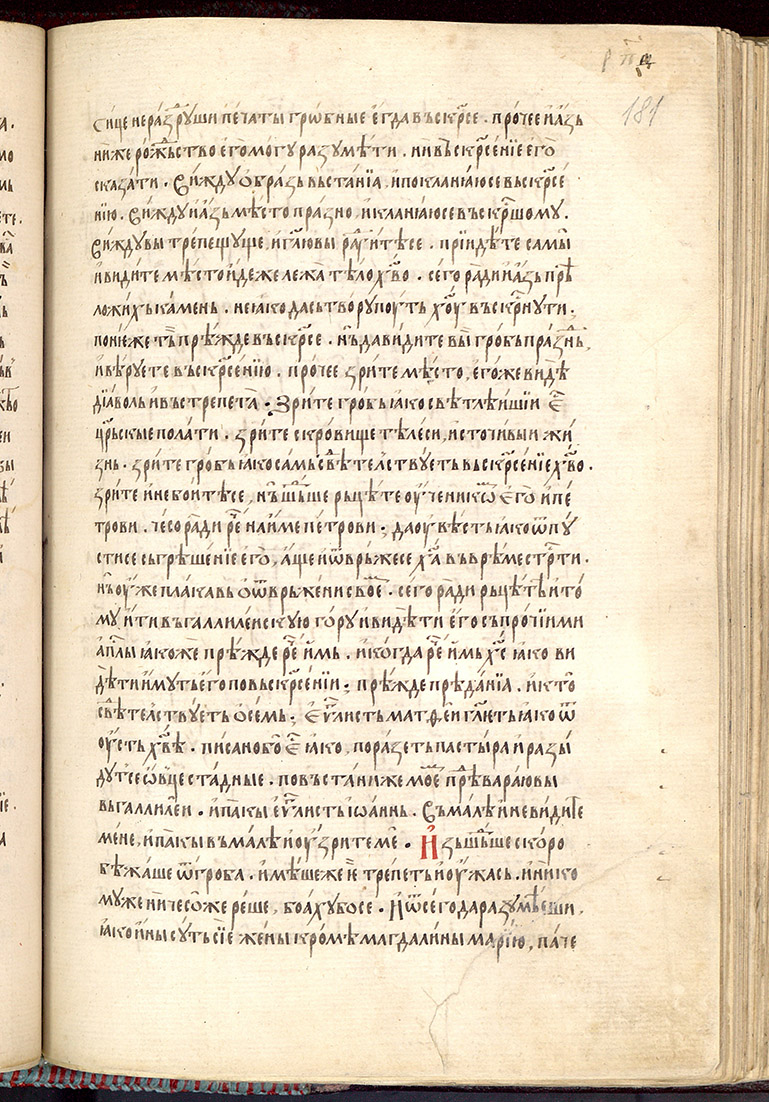 рп҃а
181
сице неразрꙋши печати грѡбные егда въскр҃се . прочее и азь
ниже рож҃ьство его могꙋ разꙋмѣти . ни въскр҃сенїе его
сказати . Виждꙋ ѻбразь въстанїа , и покланꙗюсе въскр҃се
нїю . Виждꙋ и азь мѣсто празно , и кланꙗюсе въскр҃шомꙋ .
Виждꙋ вы трепещꙋще , и гл҃ю вы раꙋитесе . прїидѣте самы
и видите мѣсто идеже лежа тѣло хв҃о . сего ради и азь прѣ
ложихъ камень . не ꙗко да сътворꙋ поуть х҃оу въскр҃нꙋти .
понѥже тъ прѣжде въскр҃се . нъ да видите вы гробъ празнь ,
и вѣрꙋете въскр҃сенїю . прочее зрите мѣсто , егоже видѣ
дїаволь и въстрепета . Зрите гробь ꙗко свѣтлѣишїи е҃
цр҃ьскые полати . зрите скровище тѣлеси , источивыи жи
знь . зрите гробь ꙗко самь свѣтелствꙋеть въскр҃сенїе хв҃о .
зрите и не боитѣсе , нъ шьⷣше рьцѣте оученикѡⷨ его и пе
трови . чесо ради рⷱе на име петрови ; да оувѣсть ꙗко ѿпꙋ
стисе съгрѣшенїе его , аще и ѿврьжесе х҃а въ врѣме стрⷭти .
нъ оуже плакавь о ѿврьжени своⷨе . сего ради рьцѣте и то
мꙋ ити въ галлилеискꙋю горꙋ и видѣти его съ прочїими
ап҃лы ꙗкоже прѣжде рⷱе имь . и когда рⷱе имь х҃с ꙗко ви
дѣти имꙋть его по въскр҃сенїи ; прѣжде прѣданїа . и кто
свѣтелствꙋеть о семь ; еѵ҃листь матѳеи гл҃ѥть ꙗко ѿ
оусть хв҃ѣ . писано бо е҃ ꙗко , поразеть пастыра и разы
дꙋтсе ѡвце стадные . по въстани же моⷨе прⷣѣвараю вы
въ галлилеи . и пакы еѵ҃листь іѡаннь . Въмалѣ и не видите
мене , и пакы въмалѣ и оузрите ме . Изьшьⷣше скоро
бѣжаше ѿ гроба . имѣше же иⷯ трепеть и оужась . и нико
мꙋже ничесоже реше , боахꙋбосе . И ѿ сего да разꙋмѣеши ,
ꙗко ины сꙋть сїе жены кромѣ магдалины марїю , паче